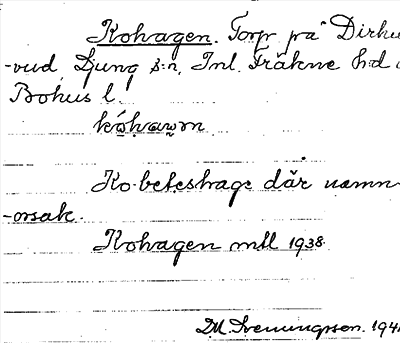 Kohagen. Torp på Dirhu
-vud, Ljung s:n, Inl. Fräkne h:d
Bohus l.
Ko-beteshage där namn
-orsak.
Kohagen mtl 1938.
D.A. Svenningsson. 194